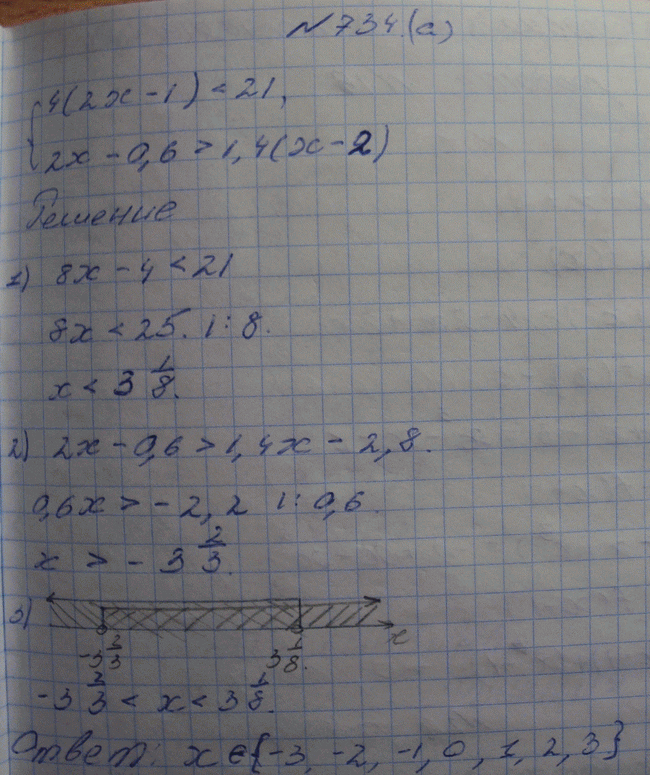 №734.(а)
4(2x - 1) < 21,
2x - 0,6 > 1,4(x - 2)
Решение
1) 8x - 4 < 21
8x < 25. |: 8.
x < 3 1/8.
2) 2x - 0,6 > 1,4x - 2,8.
0,6x > - 2,2 |: 0,6.
x > - 3 2/3.
3)
x
-3 2/3 3 1/8.
-3 2/3 < x < 3 1/8.
Ответ: x ∈ {-3, -2, -1, 0, 1, 2, 3}